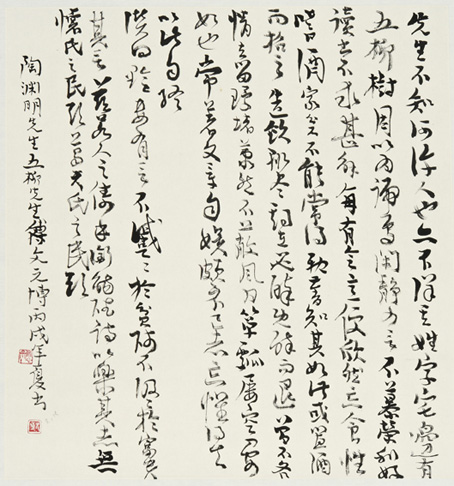 先生不知何許人也亦不詳其姓字宅邊有
五柳樹因以為號焉閑靜少言不慕榮利好
讀書不求甚解每有會意便欣然忘食性
嗜酒家貧不能常得親舊知其如此或置酒
而招之造飲輒盡期在必醉既醉而退曾不吝
情去留環堵蕭然不蔽風日簞瓢屢空晏
如也常著文章自娛頗示己志忘懷得失
以此自終
贊曰黔婁有言不戚〻於貧賤不汲〻於富貴
其言茲若人之儔乎銜觴賦詩以樂其志無
懷氏之民歟葛天氏之民歟
陶淵明先生五柳先生傳文元博丙戌年夏書